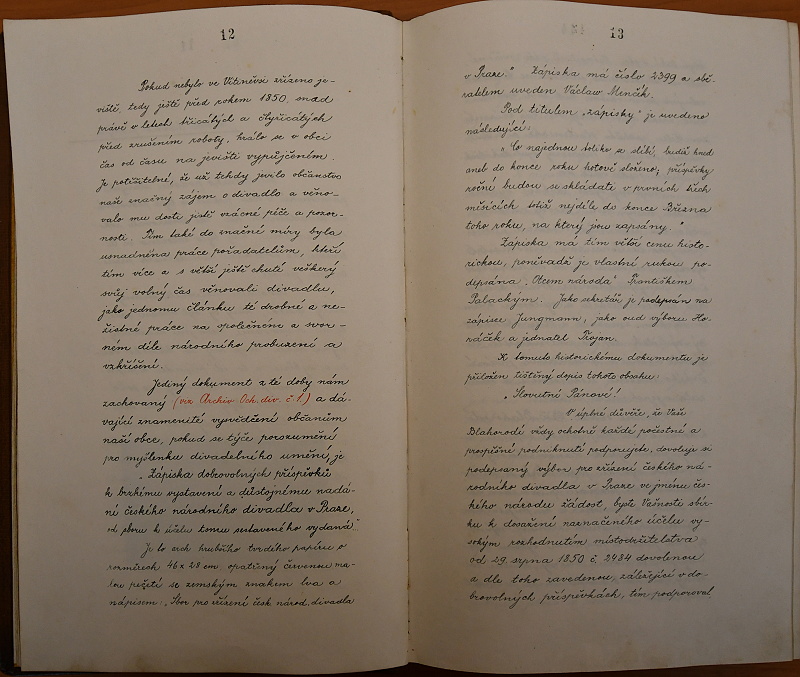 12
Pokud nebylo ve Vitiněvsi zřízeno je-
viště, tedy ještě před rokem 1850, snad
právě v letech třicátých a čtyřicátých
před zrušením roboty, hrálo se v obci
čas od času na jevišti vypůjčeném.
Je potěšitelné, že už tehdy jevilo občanstvo
naše značný zájem o divadlo a věno-
valo mu dosti jistě vzácné péče a pozor-
nosti. Tím také do značné míry byla
usnadněna práce pořadatelům, kteří
tím více a s větší ještě chutí veškerý
svůj volný čas věnovali divadlu,
jako jednomu článku té drobné a ne-
zištné práce na společném a svor-
ném díle národního probuzení a
vzkříšení.
Jediný dokument z té doby nám
zachovaný (viz Archiv Och. div. č 1.) a dá-
vající znamenité vysvědčení občanům
naší obce, pokud se týče porozumění
pro myšlenku divadelního umění, je
„Zápiska dobrovolných příspěvků
k brzkému vystavení a důstojnému nadá-
ní českého národního divadla v Praze,
od sboru k účelu tomu sestaveného vydaná".
Je to arch hrubšího tvrdého papíru o
rozměrech 46 x 28 cm opatřený červenou ma-
lou pečetí se zemským znakem lva a
nápisem: „Sbor pro zřízení česk národ. divadla
13
v Praze." Zápiska má číslo 2399 a sbě-
ratelem uveden Václav Menčík.
Pod titulem „zápisky" je uvedeno
následující:
„Co najednou toliko se slíbí, budiž hned
aneb do konce roku hotově složeno; příspěvky
roční budou se skládati v prvních třech
měsících totiž nejdéle do konce Března
toho roku, na který jsou zapsány."
Zápiska má tím větší cenu histo-
rickou, poněvadž je vlastní rukou po-
depsána „Otcem národa" Františkem
Palackým. Jako sekretář je podepsán na
zápisce Jungmann, jako oud výboru Ha-
vláček a jednatel Trojan.
K tomuto historickému dokumentu je
přiložen tištěný dopis tohoto obsahu:
„Slovutní Pánové!
V úplné důvěře, že Vaše
Blahorodí vždy ochotně každé počestné a
prospěšné podniknutí podporujete, dovoluje si
podepsaný výbor pro zřízení českého ná-
rodního divadla v Praze ve jménu čes-
kého národu žádost, byste Vašnosti sbír-
ku k dosažení naznačeného účelu vy-
sokým rozhodnutím místodržitelstva
od 29. srpna 1850 č. 2484 dovolenou
a dle toho zavedenou, záležející v do-
brovolných příspěvkách, tím podporoval